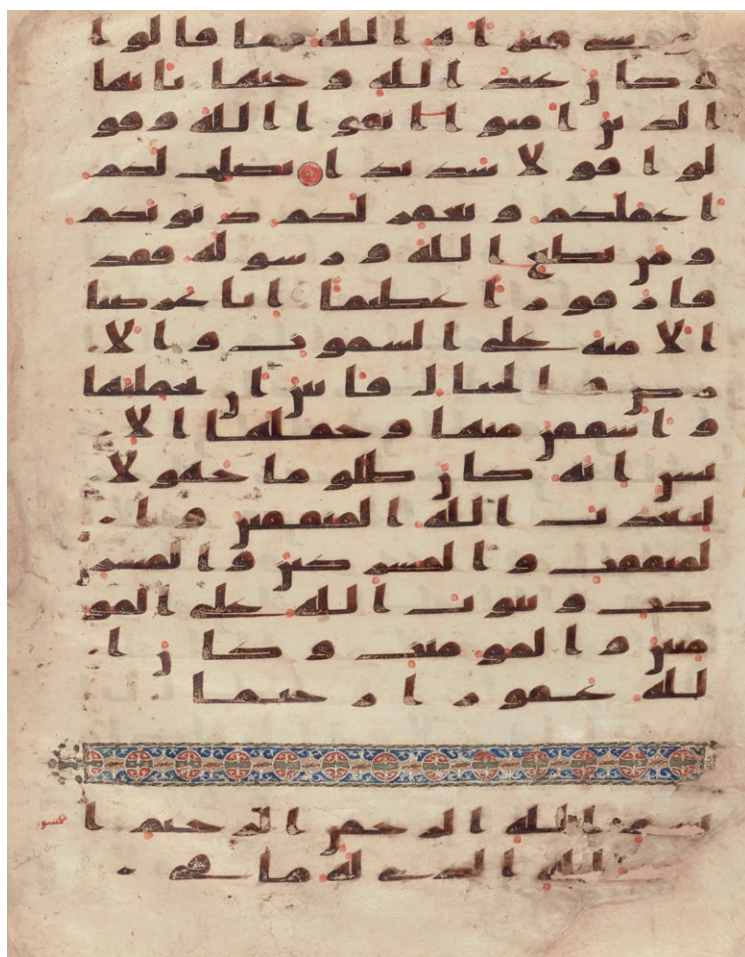 موسى فبراه الله مما قالوا
وكان عند الله وجيها يايها
الذين امنوا اتقوا الله وقو
لوا قولا سديدا يصلح لكم
اعملكم ويغفر لكم ذنوبكم
ومن يطع الله ورسوله فقد
فاز فوزا عظيما انا عرضنا
الامنه على السموت والا
رض والجبال فابين ان يحملنها
واشفقن منها وحملها الا
نسن انه كان ظلوما جهولا
ليعذب الله المنفقين وا
لمنفقت والمشركين والمشر
كت ويتوب الله على المو
منين والمومنت وكان ا
لله غفورا رحيما
بسم الله الرحمن الرحيم ا
لحمد لله الذى له ما فى